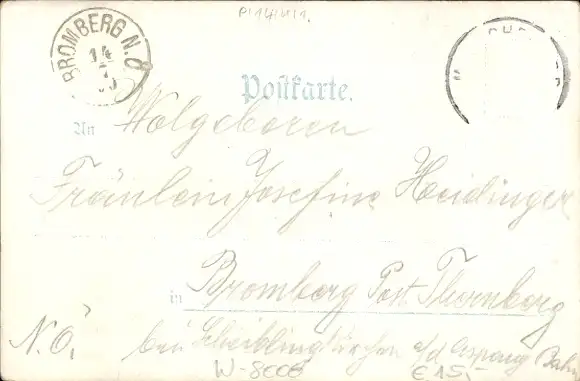 BROMBERG N.Ö
14
7
Postkarte.
An Wolgeboren
Fräulein Josefine Heidinger
in Bromberg Post Thernberg
N.Ö. bei Scheiblingkirchen a/d Aspang Bahn
W-8006 € 15,-